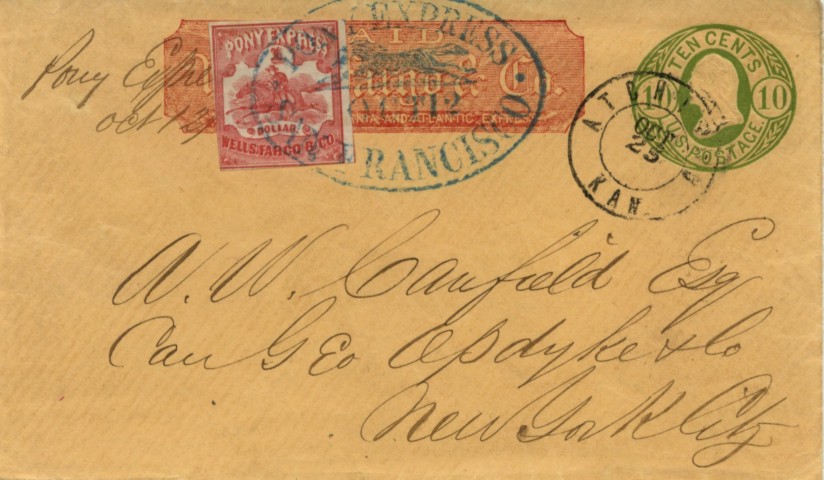 PAID
Wells, Fargo & Co.
AND ATLANTIC EXPRESS
PONY EXPRESS
DOLLAR
WELLS, FARGO & CO
PONY EXPRESS
OCT 12
SAN FRANCISCO
TEN CENTS
10 10
U.S. POSTAGE
OCT
25
KAN.
Pony
Oct 12
W. W. Canfield Esq
Care Geo Opdyke & Co
New York City